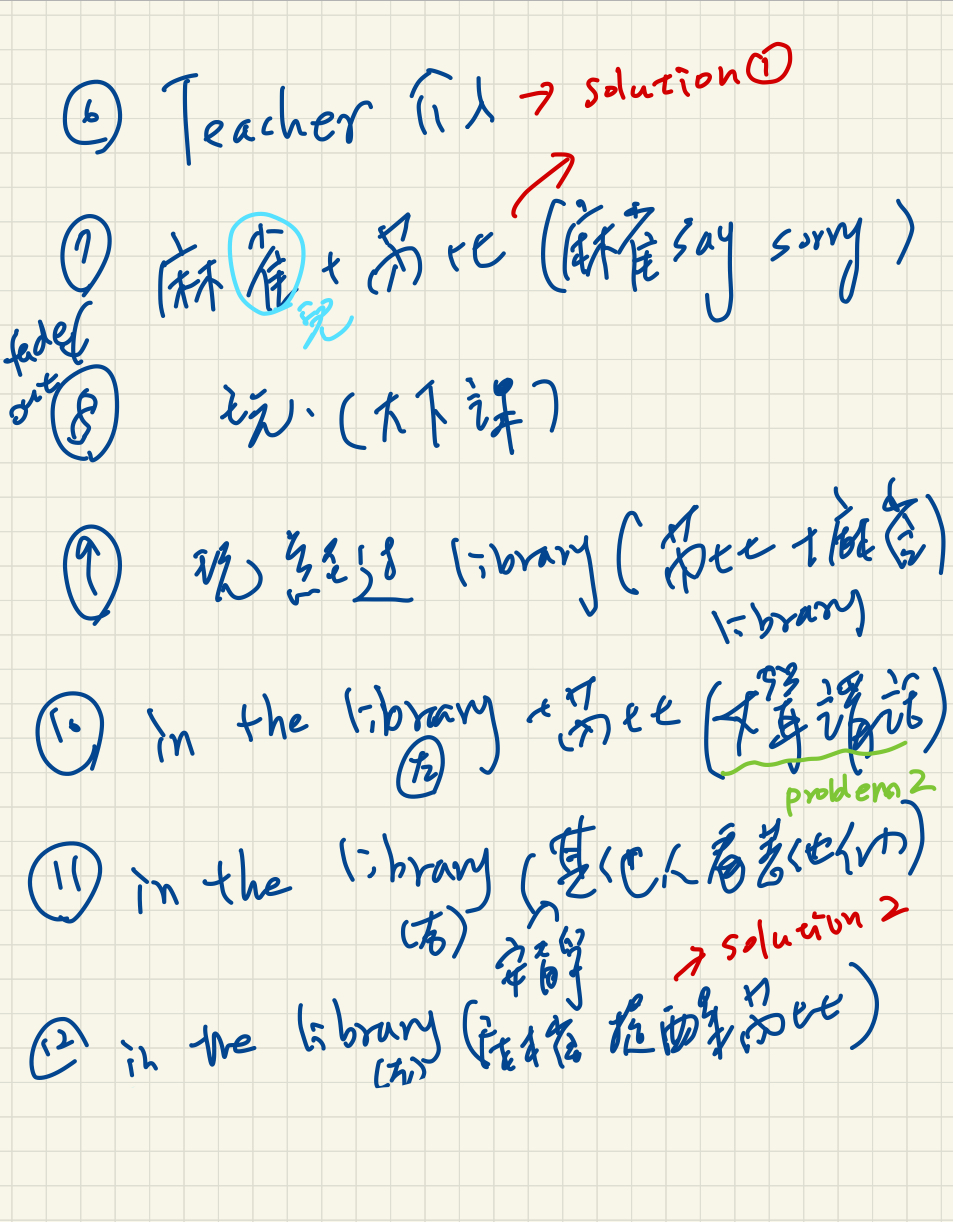 ⑥ Teacher 介入 → solution①
⑦ 麻雀 + 芬tt (麻雀 say sorry)
完
fade out
⑧ 玩. (大下課)
⑨ 玩 經過 library (芬tt + 麻雀)
library
⑩ in the library 芬tt (大聲講話)
(左)
problem 2
⑪ in the library (其他人看著他们)
(右) 安靜
→ solution 2
⑫ in the library (麻雀 提醒芬tt)
(左)